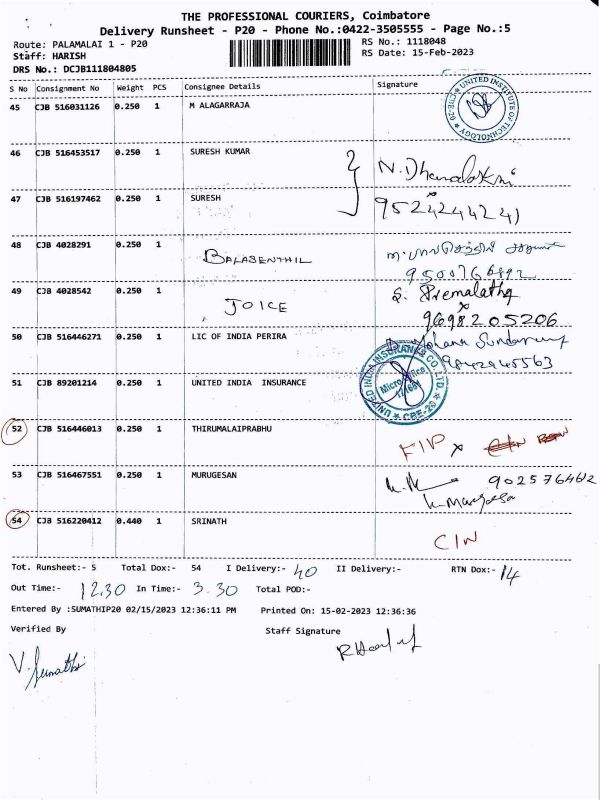 THE PROFESSIONAL COURIERS, Coimbatore
Delivery Runsheet - P20 - Phone No.:0422-3505555 - Page No.:5
Route: PALAMALAI 1 - P20
RS No.: 1118048
Staff: HARISH
RS Date: 15-Feb-2023
DRS No.: DCJB111804805
S No Consignment No Weight PCS Consignee Details Signature
45 CJB 516031126 0.250 1 M ALAGARRAJA
UNITED INSTITUTE OF TECHNOLOGY CBE-20
46 CJB 516453517 0.250 1 SURESH KUMAR
N. Dhanalakshmi
47 CJB 516197462 0.250 1 SURESH
9524244241
48 CJB 4028291 0.250 1 BALASENTHIL
49 CJB 4028542 0.250 1 JOICE
S. Premalatha
9698205206
50 CJB 516446271 0.250 1 LIC OF INDIA PERIRA
51 CJB 89201214 0.250 1 UNITED INDIA INSURANCE
UNITED INDIA INSURANCE CO. LTD. Micro Office CBE-20
52 CJB 516446013 0.250 1 THIRUMALAIPRABHU
53 CJB 516467551 0.250 1 MURUGESAN
54 CJB 516220412 0.440 1 SRINATH
C/N
Tot. Runsheet:- 5 Total Dox:- 54 I Delivery:- 40 II Delivery:- RTN Dox:- 14
Out Time:- 12.30 In Time:- 3.30 Total POD:-
Entered By :SUMATHIP20 02/15/2023 12:36:11 PM Printed On: 15-02-2023 12:36:36
Verified By Staff Signature
V. Sumathi